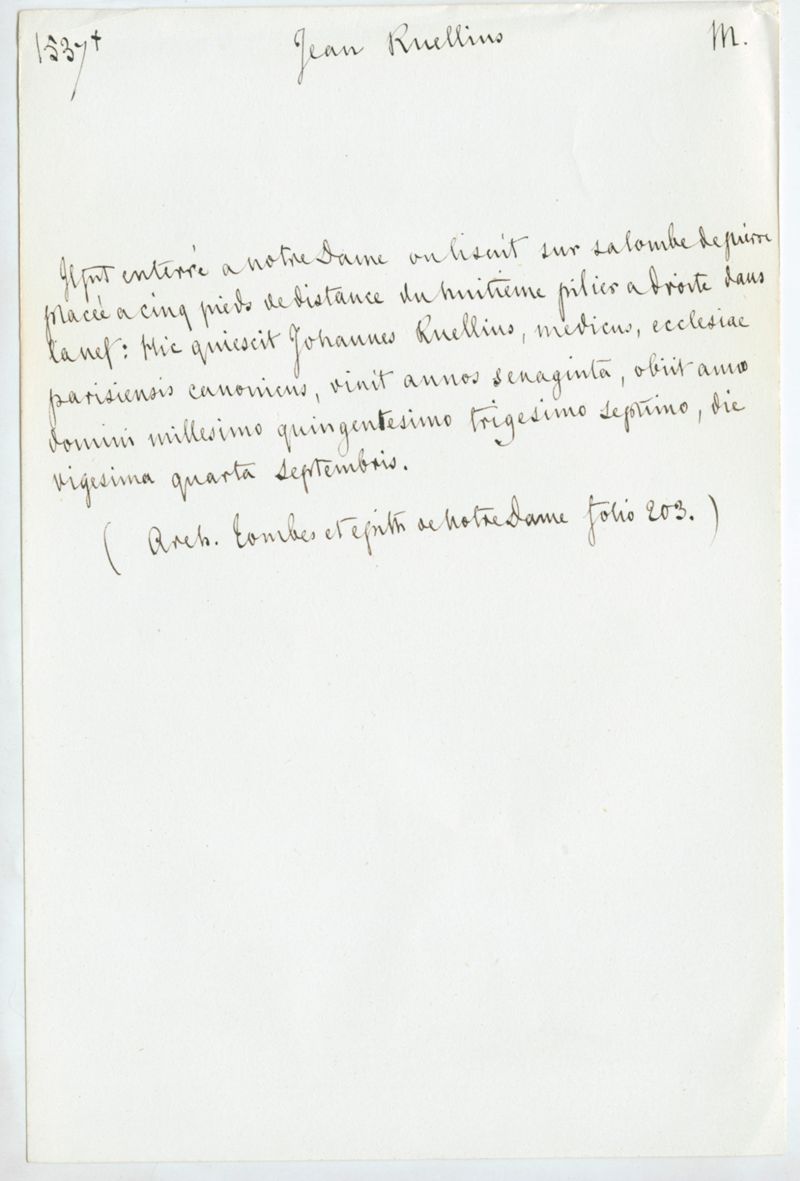 1537† Jean Ruellius M.
Il fut enterré a notre Dame on lisait sur sa tombe de pierre
placée a cinq pieds de distance du huitième pilier a droite dans
la nef : Hic quiescit Johannes Ruellius, medicus, ecclesiae
parisiensis canonicus, vixit annos sexaginta, obiit anno
domini millesimo quingentesimo trigesimo septimo, die
vigesima quarta septembris.
( Arch. Tombes et epith de notre Dame folio 203. )